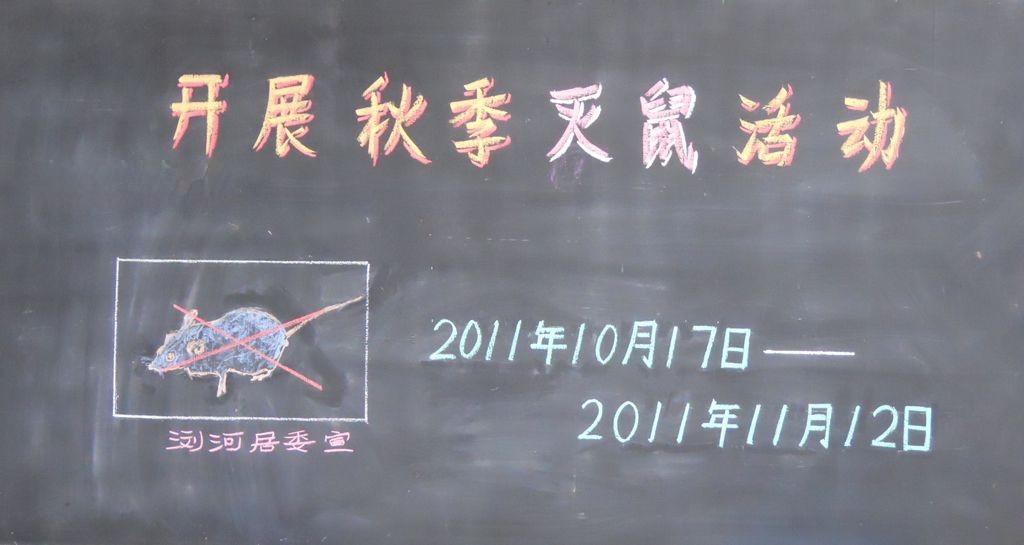 开展秋季灭鼠活动
2011年10月17日——
2011年11月12日
浏河居委宣